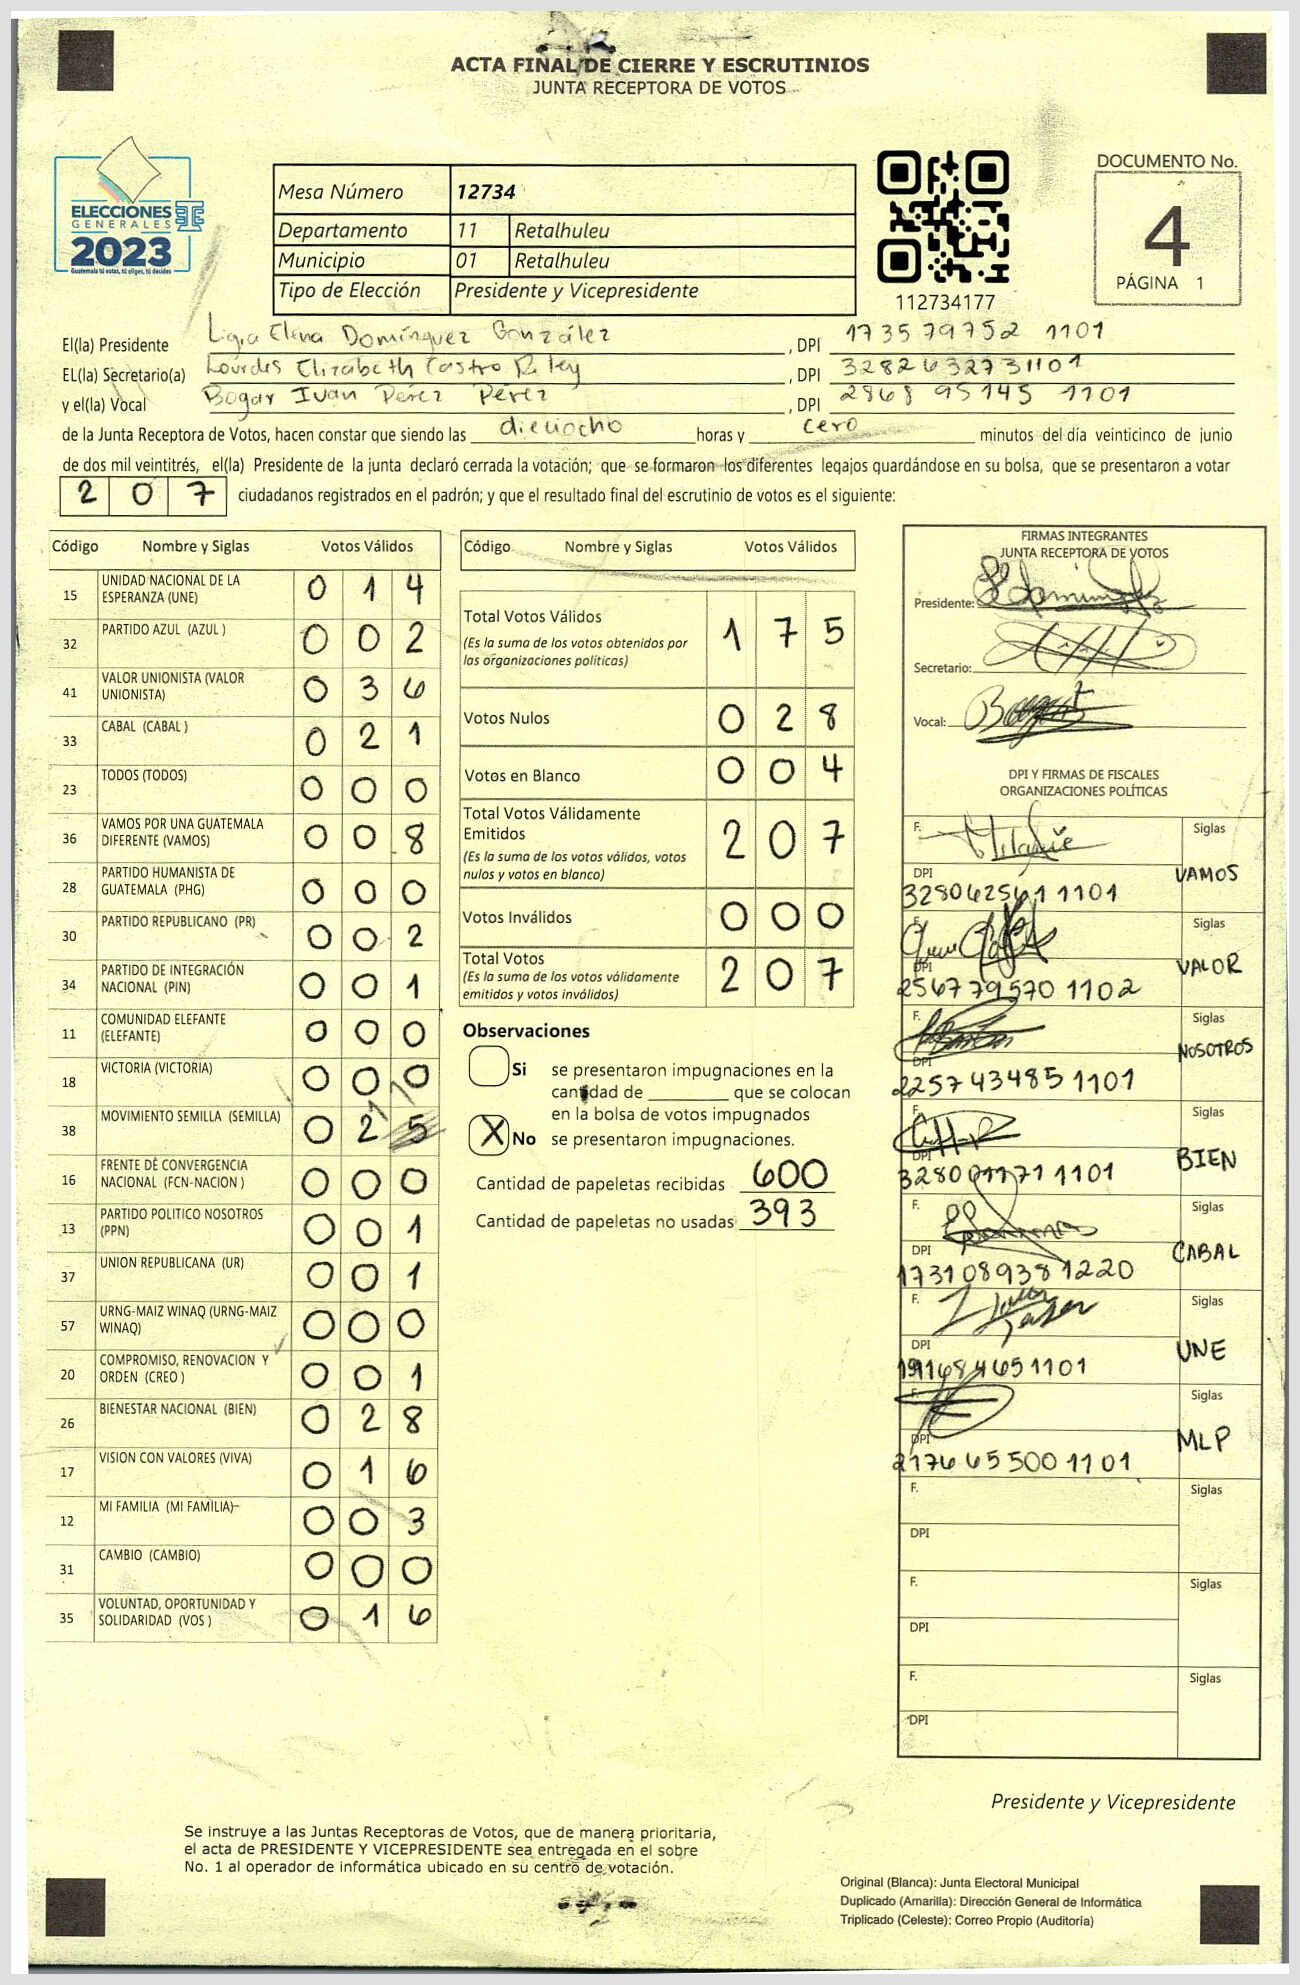 ACTA FINAL DE CIERRE Y ESCRUTINIOS
JUNTA RECEPTORA DE VOTOS
ELECCIONES
GENERALES
2023
Guatemala tú votas, tú eliges, tú decides
Mesa Número 12734
Departamento 11 Retalhuleu
Municipio 01 Retalhuleu
Tipo de Elección Presidente y Vicepresidente
112734177
DOCUMENTO No.
4
PÁGINA 1
El(la) Presidente Ligia Elena Domínguez González, DPI 173579752 1101
EL(la) Secretario(a) Lourdes Elizabeth Castro Riley, DPI 3282632731101
y el(la) Vocal Bogar Ivan Pérez Pérez, DPI 2868 95145 1101
de la Junta Receptora de Votos, hacen constar que siendo las dieciocho horas y cero minutos del día veinticinco de junio
de dos mil veintitrés, el(la) Presidente de la junta declaró cerrada la votación; que se formaron los diferentes legajos guardándose en su bolsa, que se presentaron a votar
207 ciudadanos registrados en el padrón; y que el resultado final del escrutinio de votos es el siguiente:
Código Nombre y Siglas Votos Válidos
15 UNIDAD NACIONAL DE LA ESPERANZA (UNE) 0 1 4
32 PARTIDO AZUL (AZUL ) 0 0 2
41 VALOR UNIONISTA (VALOR UNIONISTA) 0 3 6
33 CABAL (CABAL ) 0 2 1
23 TODOS (TODOS) 0 0 0
36 VAMOS POR UNA GUATEMALA DIFERENTE (VAMOS) 0 0 8
28 PARTIDO HUMANISTA DE GUATEMALA (PHG) 0 0 0
30 PARTIDO REPUBLICANO (PR) 0 0 2
34 PARTIDO DE INTEGRACIÓN NACIONAL (PIN) 0 0 1
11 COMUNIDAD ELEFANTE (ELEFANTE) 0 0 0
18 VICTORIA (VICTORIA) 0 0 0
38 MOVIMIENTO SEMILLA (SEMILLA) 0 2 5
16 FRENTE DE CONVERGENCIA NACIONAL (FCN-NACION ) 0 0 0
13 PARTIDO POLITICO NOSOTROS (PPN) 0 0 1
37 UNION REPUBLICANA (UR) 0 0 1
57 URNG-MAIZ WINAQ (URNG-MAIZ WINAQ) 0 0 0
20 COMPROMISO, RENOVACION Y ORDEN (CREO ) 0 0 1
26 BIENESTAR NACIONAL (BIEN) 0 2 8
17 VISION CON VALORES (VIVA) 0 1 6
12 MI FAMILIA (MI FAMILIA) 0 0 3
31 CAMBIO (CAMBIO) 0 0 0
35 VOLUNTAD, OPORTUNIDAD Y SOLIDARIDAD (VOS ) 0 1 6
Código Nombre y Siglas Votos Válidos
Total Votos Válidos 1 7 5
(Es la suma de los votos obtenidos por
las organizaciones políticas)
Votos Nulos 0 2 8
Votos en Blanco 0 0 4
Total Votos Válidamente
Emitidos 2 0 7
(Es la suma de los votos válidos, votos
nulos y votos en blanco)
Votos Inválidos 0 0 0
Total Votos 2 0 7
(Es la suma de los votos válidamente
emitidos y votos inválidos)
Observaciones
Si se presentaron impugnaciones en la
cantidad de ________ que se colocan
en la bolsa de votos impugnados
X No se presentaron impugnaciones.
Cantidad de papeletas recibidas 600
Cantidad de papeletas no usadas 393
FIRMAS INTEGRANTES
JUNTA RECEPTORA DE VOTOS
Presidente:
Secretario:
Vocal:
DPI Y FIRMAS DE FISCALES
ORGANIZACIONES POLÍTICAS
F. Siglas
DPI VAMOS
328062561 1101
F. Siglas
DPI VALOR
256779570 1102
F. Siglas
DPI NOSOTROS
2257 43485 1101
F. Siglas
DPI BIEN
1101
F. Siglas
DPI CABAL
173108938 1220
F. Siglas
DPI UNE
1101
F. Siglas
DPI MLP
217665500 1101
F. Siglas
DPI
F. Siglas
DPI
F. Siglas
DPI
Presidente y Vicepresidente
Se instruye a las Juntas Receptoras de Votos, que de manera prioritaria,
el acta de PRESIDENTE Y VICEPRESIDENTE sea entregada en el sobre
No. 1 al operador de informática ubicado en su centro de votación.
Original (Blanca): Junta Electoral Municipal
Duplicado (Amarilla): Dirección General de Informática
Triplicado (Celeste): Correo Propio (Auditoría)